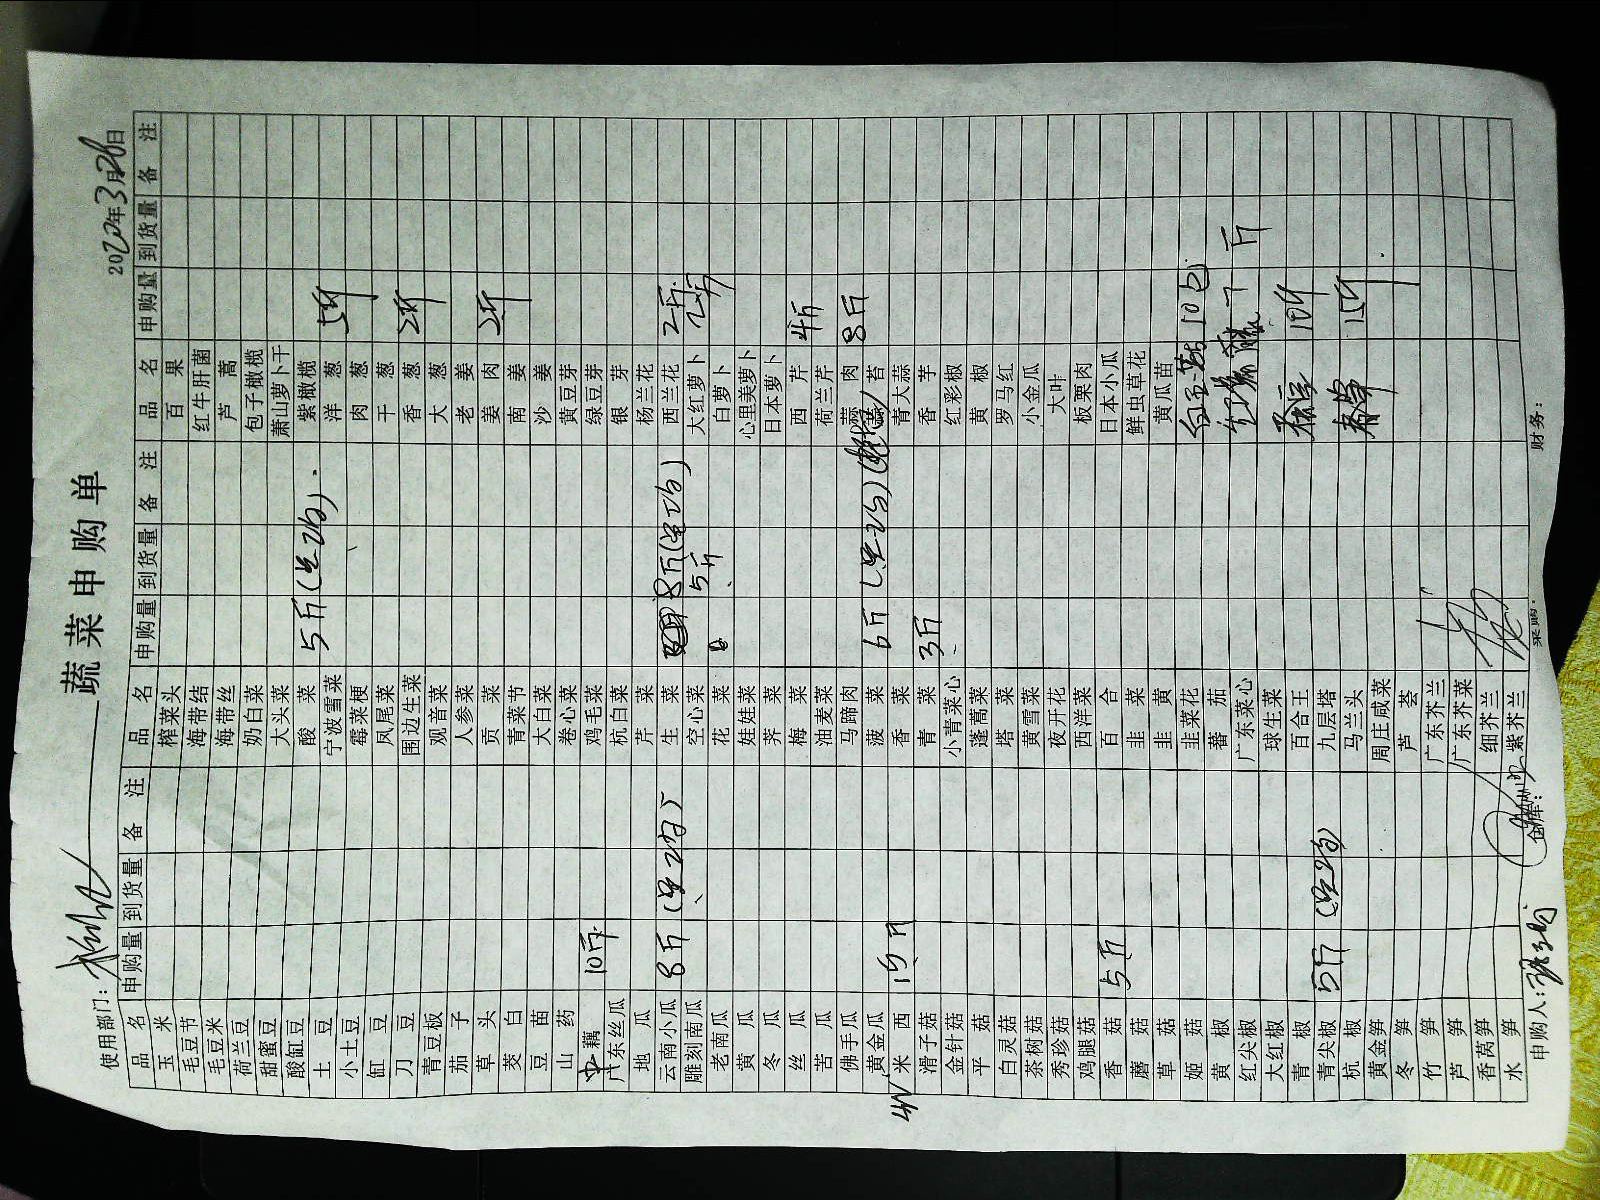 蔬菜申购单
使用部门: 2022年3月26日
品名 申购量 到货量 备注 品名 申购量 到货量 备注 品名 申购量 到货量 备注
玉米 榨菜头 百果
毛豆节 海带结 红牛肝菌
毛豆米 海带丝 芦蒿
荷兰豆 奶白菜 包子橄榄
甜蜜豆 大头菜 萧山萝卜干
酸缸豆 酸菜 5斤 紫橄榄
土豆 宁波雪菜 洋葱 5斤
小土豆 霉菜梗 肉葱
缸豆 凤尾菜 干葱
刀豆 围边生菜 香葱 2斤
青豆板 观音菜 大葱
茄子 人参菜 老姜
草头 贡菜 姜肉 2斤
茭白 青菜节 南姜
豆苗 大白菜 沙姜
山药 卷心菜 黄豆芽
藕 10斤 鸡毛菜 绿豆芽
广东丝瓜 杭白菜 银芽
地瓜 芹菜 杨兰花
云南小瓜 8斤 生菜 8斤 西兰花 2斤
雕刻南瓜 空心菜 5斤 大红萝卜 2斤
老南瓜 花菜 白萝卜
黄瓜 娃娃菜 心里美萝卜
冬瓜 荠菜 日本萝卜
丝瓜 梅菜 西芹 4斤
苦瓜 油麦菜 荷兰芹
佛手瓜 马蹄肉 蒜肉 8斤
黄金瓜 菠菜 6斤 蒜苔
米西 15斤 香菜 青大蒜
滑子菇 青菜 3斤 香芋
金针菇 小青菜心 红彩椒
平菇 蓬蒿菜 黄椒
白灵菇 塔菜 罗马红
茶树菇 黄雪菜 小金瓜
秀珍菇 夜开花 大叶
鸡腿菇 西洋菜 板栗肉
香菇 5斤 百合 日本小瓜
蘑菇 韭菜 鲜虫草花
草菇 韭黄 黄瓜苗
姬菇 韭菜花 白玉菇 10包
黄椒 蕃茄
红尖椒 广东菜心 7斤
大红椒 球生菜
青椒 百合王 10斤
青尖椒 5斤 九层塔
杭椒 马兰头 春笋 15斤
黄金笋 周庄咸菜
冬笋 芦荟
竹笋 广东芥兰
芦笋 广东芥菜
香莴笋 细芥兰
水笋 紫芥兰
申购人: 仓库: 采购: 财务: